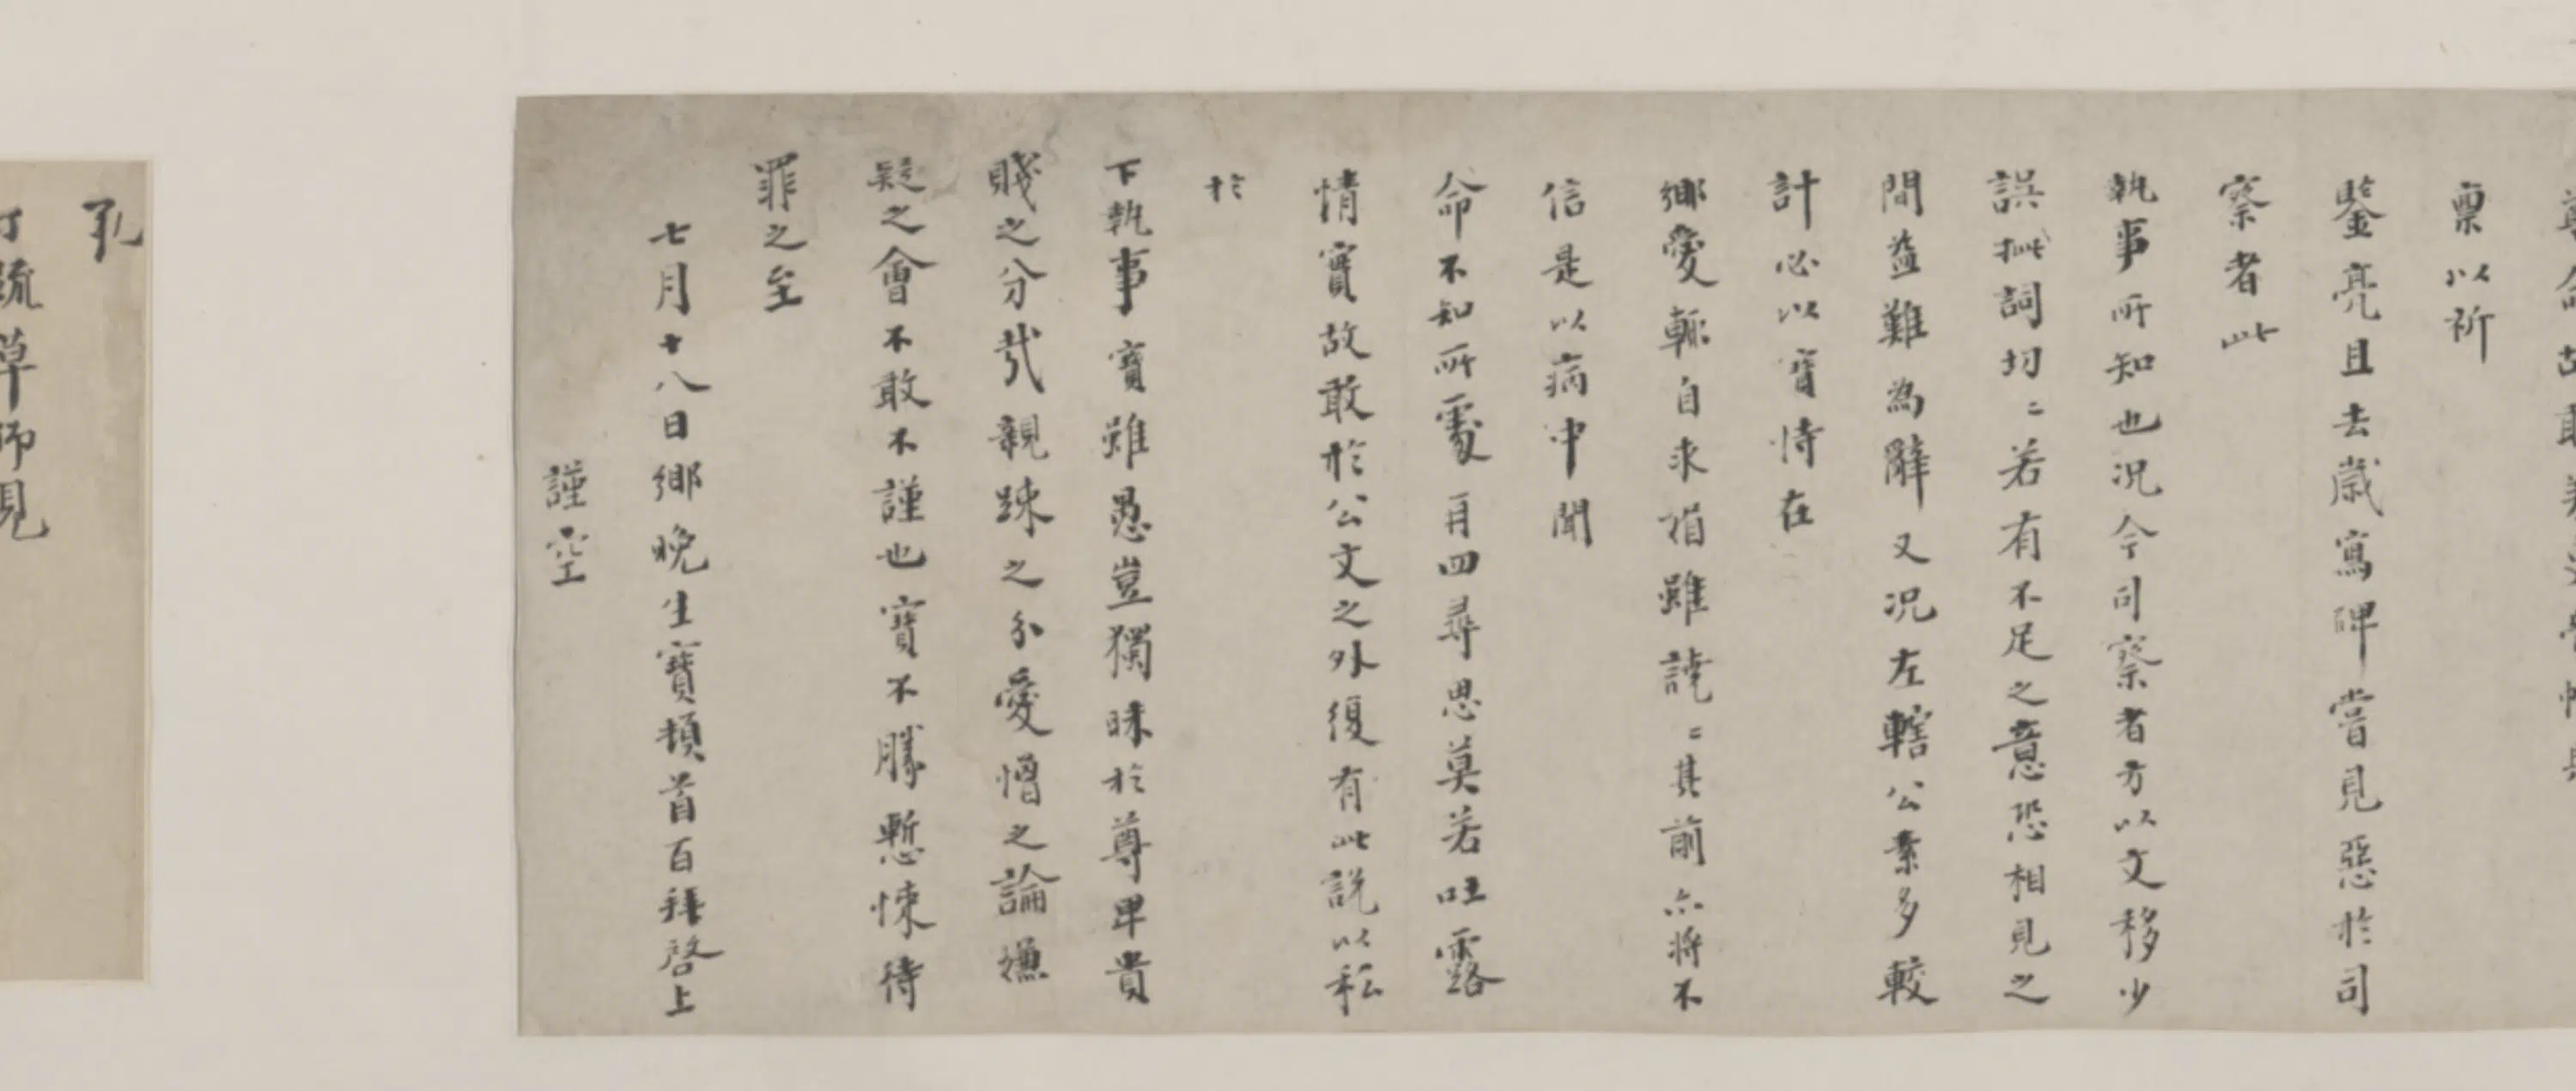 稟以祈
鑒亮且去歲寫碑嘗見惡於司
察者此
執事所知也況今司察者方以文移少
誤批詞切〻若有不足之意恐相見之
間益難為辭又況左轄公素多較
計必以寶恃在
鄉愛輒自求指雖諄〻其前亦將不
信是以病中聞
命不知所處再四尋思莫若吐露
情實故敢於公文之外復有此説以私
於
下執事寶雖愚豈獨昧於尊卑貴
賤之分哉親踈之分愛憎之論嫌
疑之會不敢不謹也寶不勝慙悚待
罪之至
七月十八日鄉晚生寶頓首百拜啓上
謹空
疏草師見